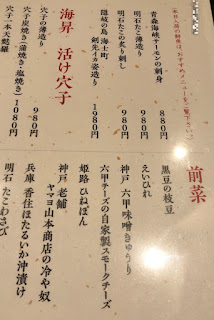 本日入荷の鮮魚は、おすすめメニューをご覧下さい。
青森海峡サーモンの刺身 880円
明石たこ薄造り 880円
明石たこの炙り刺し 980円
隠岐の島 海士町
剣先イカ姿造り 1980円
海昇 活け穴子
穴子の薄造り 980円
穴子炭焼き(蒲焼き・塩焼き) 1080円
穴子一本天麩羅 980円
前菜
黒豆の枝豆
えいひれ
神戸 六甲味噌きゅうり
六甲チーズの自家製スモークチーズ
姫路 ひねぽん
神戸 老舗
ヤマヨ山本商店の冷や奴
兵庫 香住ほたるいか沖漬け
明石 たこわさび